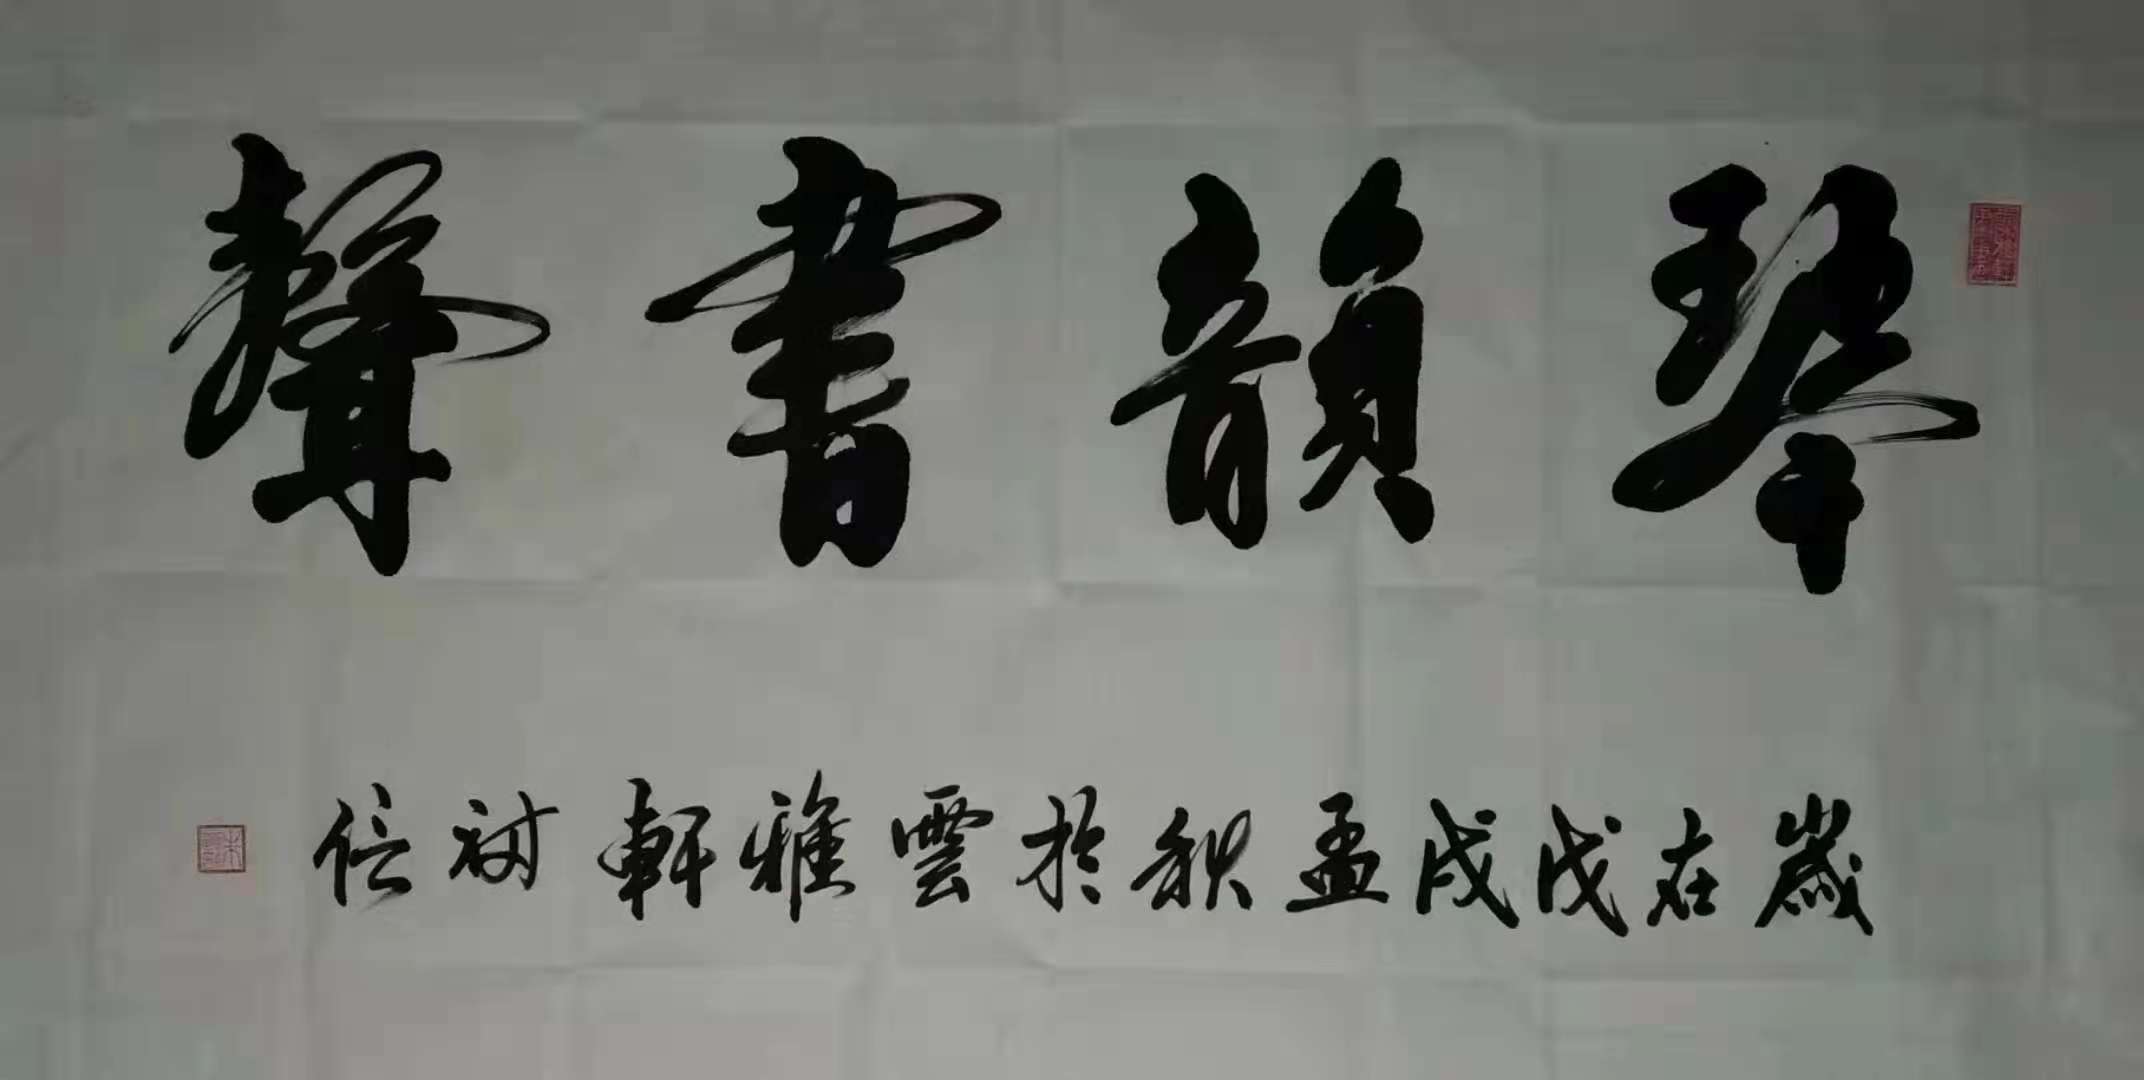 琴韻書聲
歲在戊戌孟秋於雲雅軒樹信